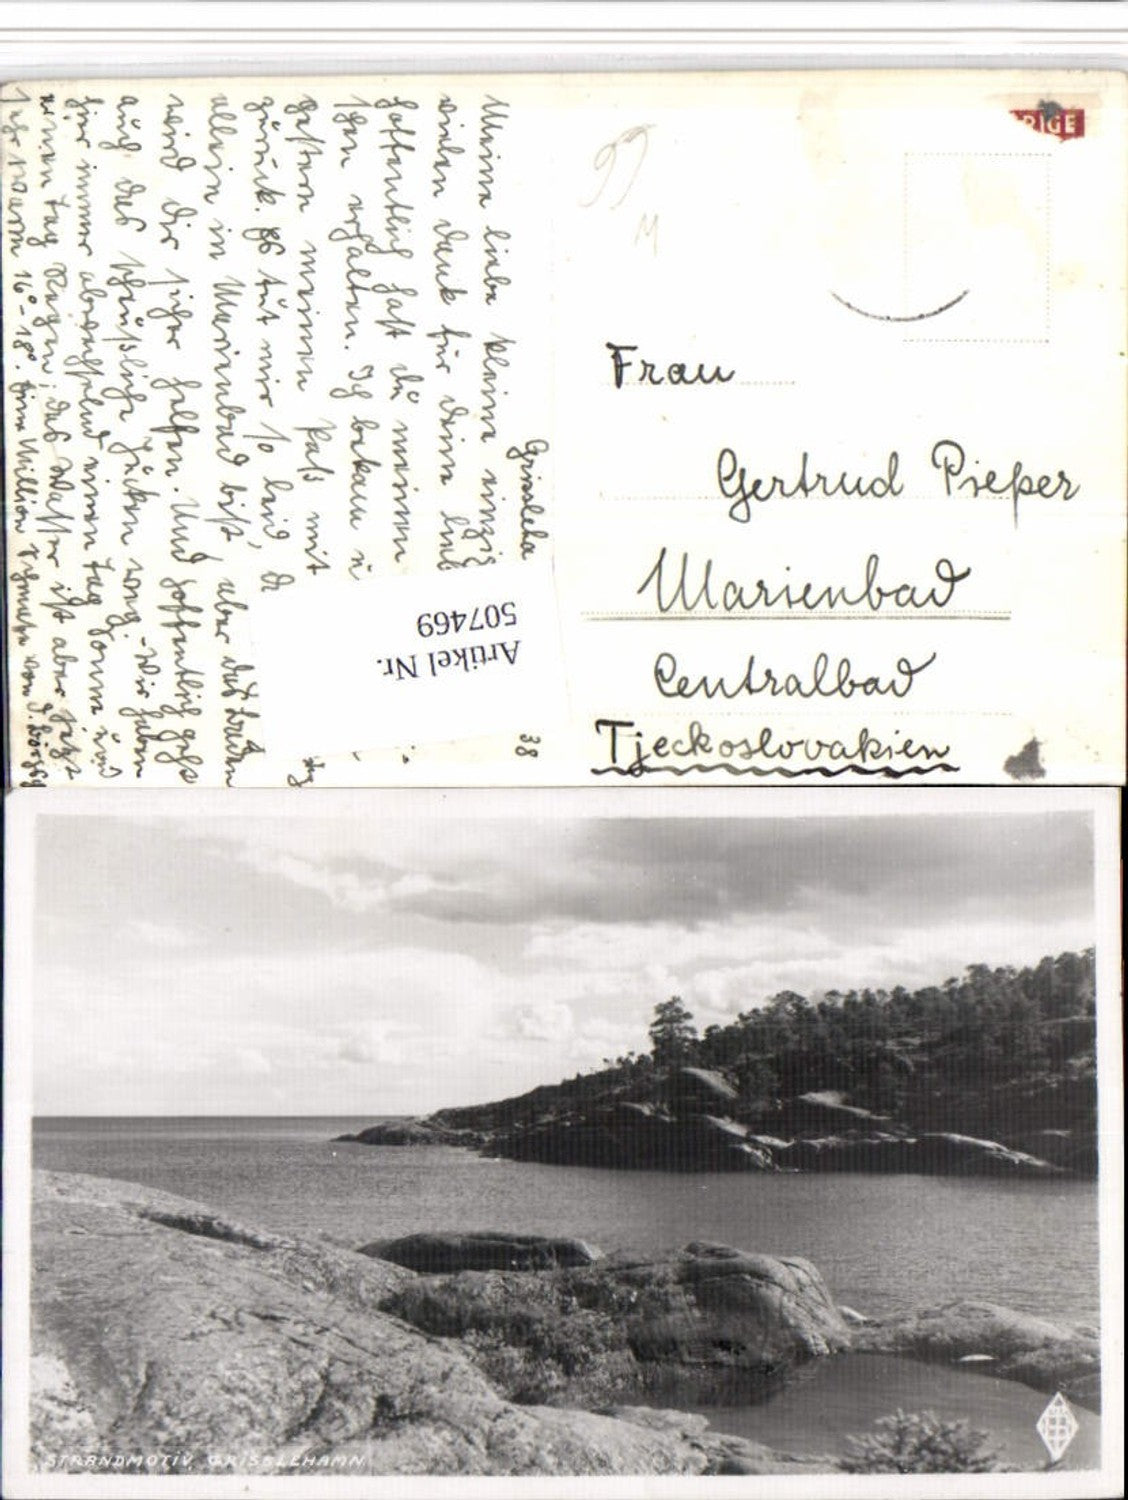 Grissleha
38
Meine liebe kleine einzig
vielen Dank für deine lieb
hoffentlich hast du meinen
schon erhalten. Ich bekam
gestern meinen Paß mit
zurück. Es tut mir so leid, d
allein in Marienbad bist, aber das Baden
wird dir sicher helfen. Und hoffentlich geht
auch das scheußliche Jucken weg. - Wir haben
für immer abwechselnd einen Tag Sonne und
einen Tag Regen; das Wasser ist aber jetzt
sehr warm 16° - 18°. Eine Million
Artikel Nr.
507469
RIGE
Frau
Gertrud Pieper
Marienbad
Centralbad
Tjeckoslovakien
STRANDMOTIV, GRISSLEHAMN.